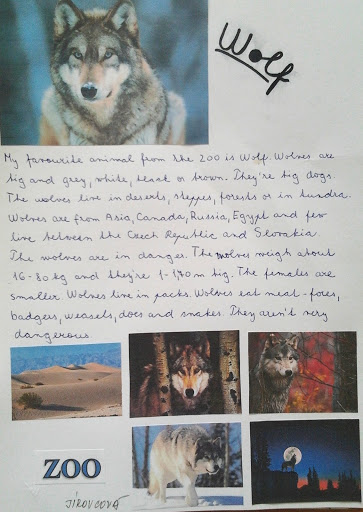 Wolf
My favourite animal from the ZOO is Wolf. Wolves are
big and grey, white, black or brown. They're big dogs.
The wolves live in deserts, steppes, forests or in tundra.
Wolves are from Asia, Canada, Russia, Egypt and few
live between the Czech Republic and Slovakia.
The wolves are in danger. The wolves weigh about
16-80 kg and they're 1-1,70m big. The females are
smaller. Wolves live in packs. Wolves eat meat - foxes,
badgers, weasels, does and snakes. They aren't very
dangerous.
ZOO
JÍROVCOVÁ